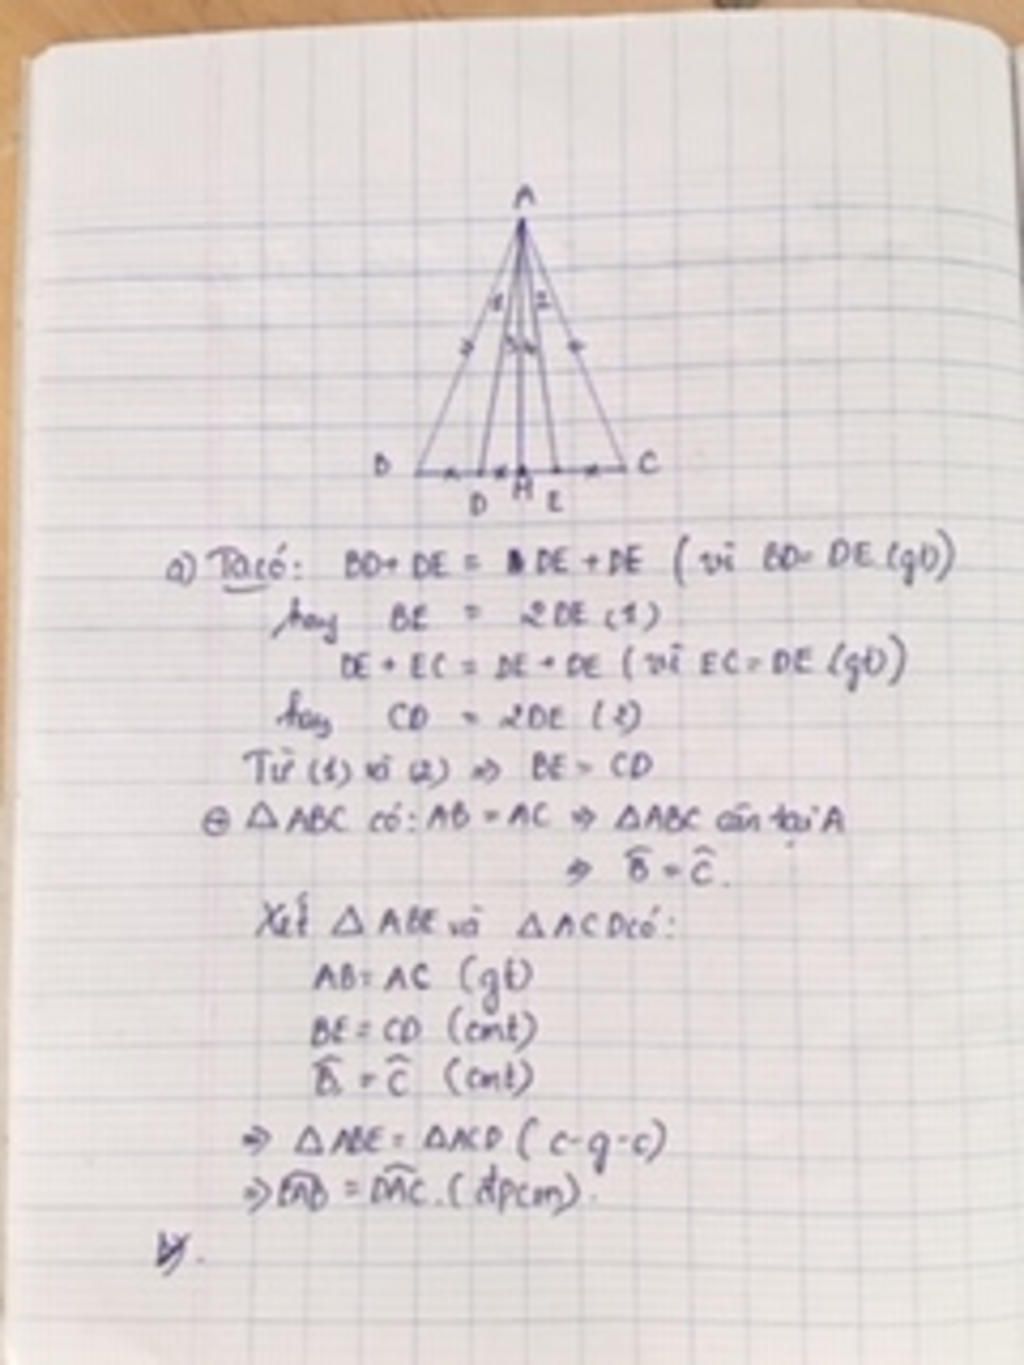 A
1 2
3 4
B C
D M E
a) Ta có: BD + DE = DE + DE (vì BD = DE (gt))
hay BE = 2DE (1)
DE + EC = DE + DE (vì EC = DE (gt))
hay CD = 2DE (2)
Từ (1) và (2) => BE = CD
△ABC có: AB = AC => △ABC cân tại A
=> B̂ = Ĉ.
Xét △ABE và △ACD có:
AB = AC (gt)
BE = CD (cmt)
B̂ = Ĉ (cmt)
=> △ABE = △ACD (c-g-c)
=> EAB = DAC. (đpcm).
b).